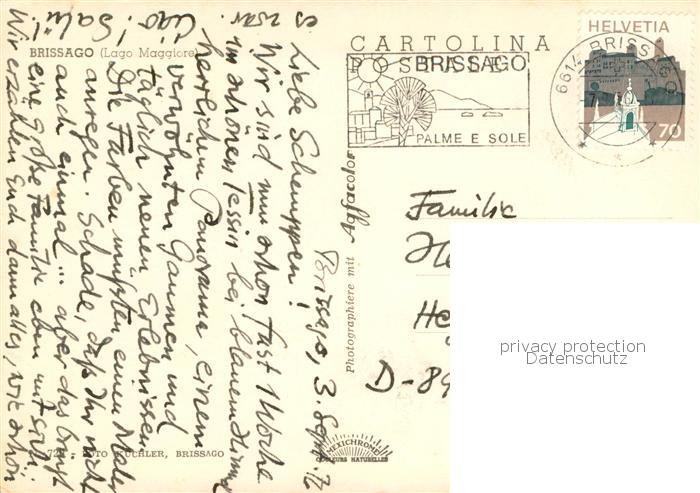 BRISSAGO (Lago Maggiore)
CARTOLINA
POSTALE
BRISSAGO
PALME E SOLE
6614 BRISSAGO
HELVETIA
70
Brissago, 3. Sept. 72
Liebe Schemppen!
Wir sind nun schon fast 1 Woche
im schönen Tessin bei blauem Himmel
herrlichem Panorama, einem
verwöhnten Gaumen und
täglich neuen Erlebnissen
Die Farben müßten einen Maler
anregen. Schade, daß Ihr nicht
auch einmal ... aber das bringt
eine große Familie eben mit sich!
Wir erzählen Euch dann alles, wie schön
es war. Ciao! Salü!
Photographiere mit
color
Familie
He
D-89
FOTO KÜCHLER, BRISSAGO
MEXICHROME
COULEURS NATURELLES
privacy protection
Datenschutz